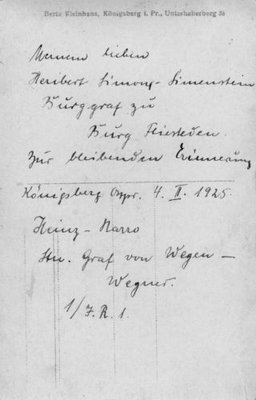 Berta Kleinhans, Königsberg i. Pr., Unterhaberberg 8a
Meinem lieben
Heribert Simons-Simenstein
Burggraf zu
Burg Friesteden.
Zur bleibenden Erinnerung
Königsberg Ospr. 4. II. 1925
Heinz-Narro
Stu. Graf von Wegen –
Wegner.
1/J.R.1.